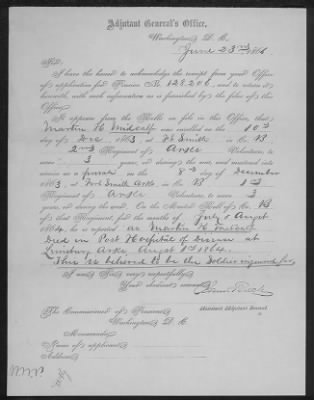 Adjutant General's Office,
Washington, D. C.
June 23rd 1864.
Sir:
I have the honor to acknowledge the receipt from your Office
of application for Pension No. 128206, and to return it
herewith, with such information as is furnished by the files of this
Office.
It appears from the Rolls on file in this Office, that
Martin H. Midcalf was enrolled on the 10th
day of Dec, 1863, at Ft Smith in Co. B
2nd Regiment of Arks Volunteers, to
serve 3 years, or during the war, and mustered into
service as a private on the 8th day of December
1863, at Fort Smith Arks, in Co. B 1st
Regiment of Arks Volunteers, to serve 3
years, or during the war. On the Muster Roll of Co. B
of that Regiment, for the months of July & August
1864, he is reported as Martin H.
Died in Post Hospital of Disease at
Arks August 1864.
This is believed to be the soldier inquired for.
I am, Sir, very respectfully,
Your obedient servant,
Assistant Adjutant General
The Commissioner of Pensions
Washington, D. C.
Memoranda:
Name of applicant
Address